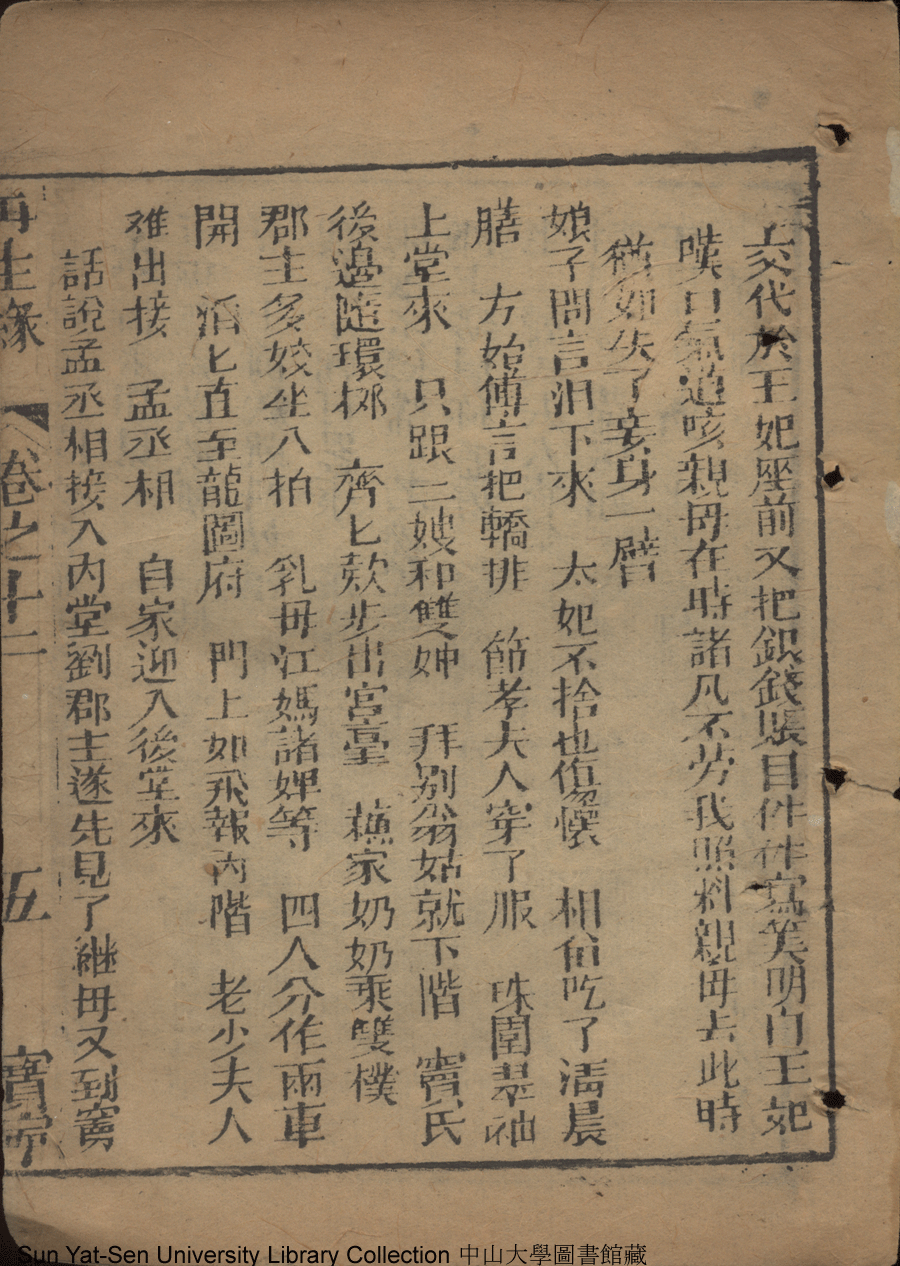 交代於王妃座前又把銀錢賬目件件寫筭明白王妃
嘆口氣道咳親毋在時諸凡不劳我照料親毋去此時
猶如失了妾身一臂
娘子問言泪下來 太妃不捨也傷懷 相侑吃了淸晨
膳 方始傅言把轎排 節孝夫人穿了服 珠圍翠袖
上堂來 只跟二嫂和雙妽 拜别翁姑就下階 竇氏
後邊隨環㧢 齊匕欵步出宮臺 蘓家奶奶乘雙樸
郡主多姣坐八拍 乳毋江媽諸婢等 四人分作兩車
開 滔匕直至龍圖府 門上如飛報內階 老少夫人
难出接 孟丞相 自家迎入後堂來
話說孟丞相接入內堂劉郡主遂先見了継毋又到竇
再生緣 卷之十二 五 寳寧
Sun Yat-Sen University Library Collection 中山大學圖書館藏